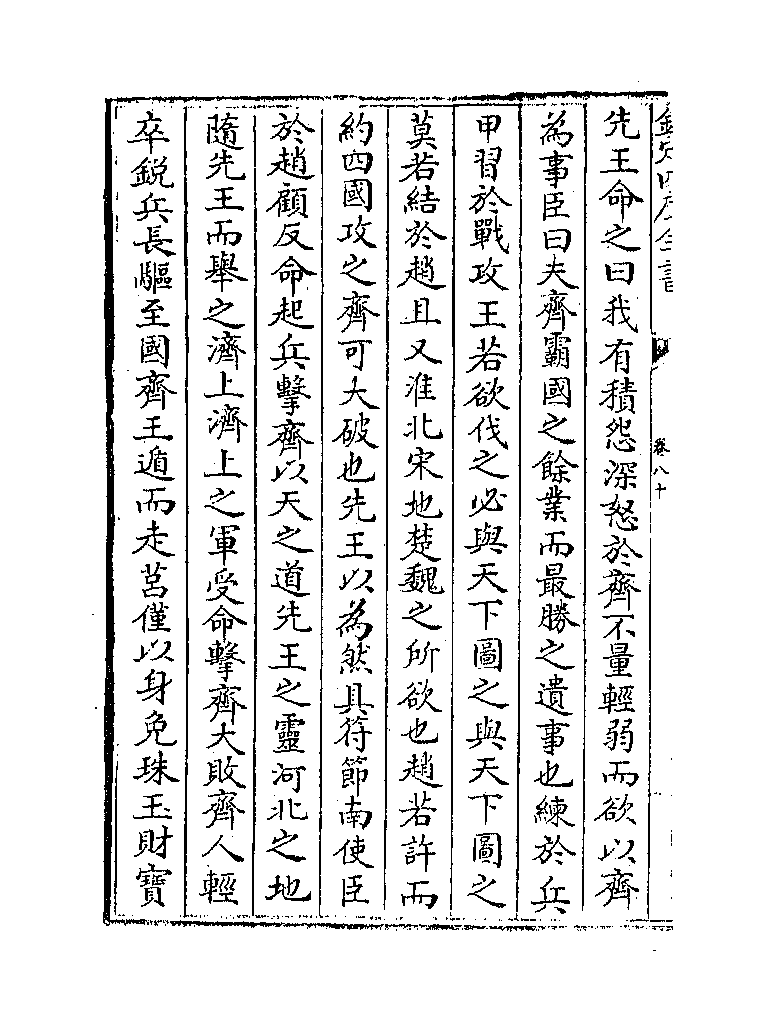 欽定四庫全書
卷八十
先王命之曰我有積怨深怒於齊不量輕弱而欲以齊
為事臣曰夫齊霸國之餘業而最勝之遺事也練於兵
甲習於戰攻王若欲伐之必與天下圖之與天下圖之
莫若結於趙且又淮北宋地楚魏之所欲也趙若許而
約四國攻之齊可大破也先王以為然具符節南使臣
於趙顧反命起兵擊齊以天之道先王之靈河北之地
隨先王而舉之濟上濟上之軍受命擊齊大敗齊人輕
卒銳兵長驅至國齊王遁而走莒僅以身免珠玉財寶